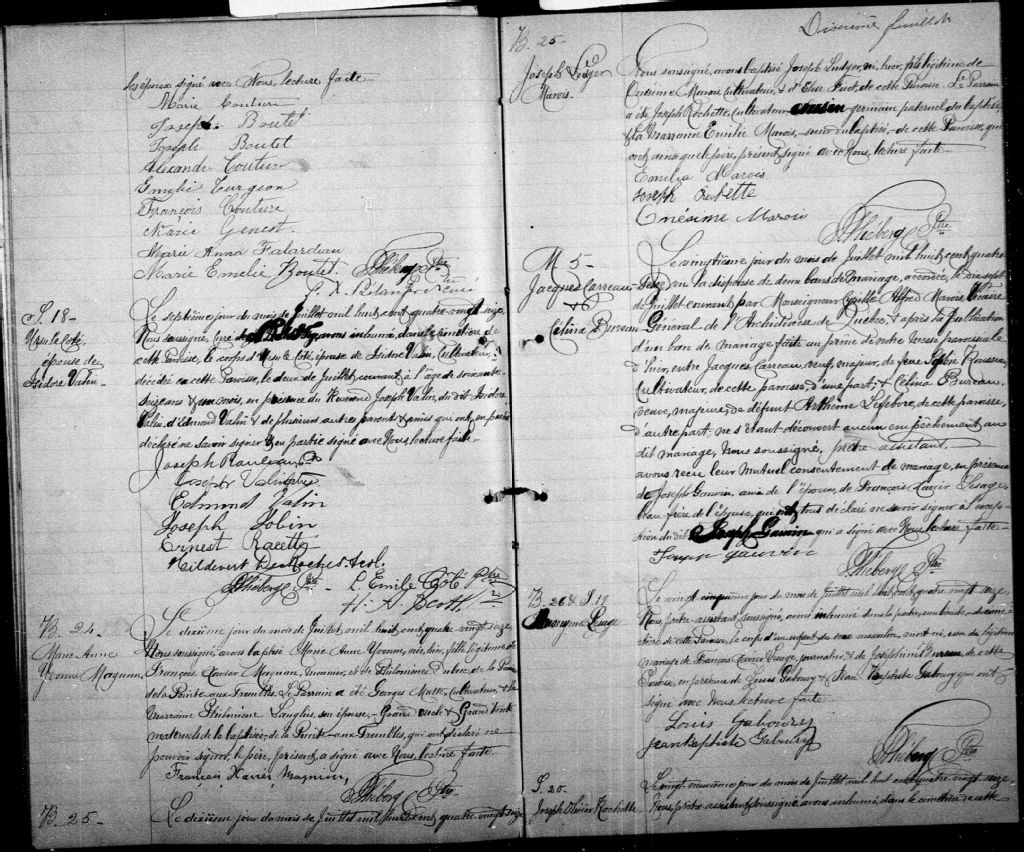 Les époux signé avec Nous, lecture faite
Marie Couture
Joseph Boutet
Joseph Boutet
Alexandre Couture
Turgeon
François Couture
Marie Genest
Marie Anna Falardeau
Marie Emelie Boutet. Ptre
S. 18-
Ursule Coté,
épouse de
Isidore Valin.
Le septième jour du mois de Juillet mil huit cent quatre vingt seize,
Nous soussigné, curé avons inhumé, dans le cimetière de
cette paroisse, le corps d'Ursule Coté, épouse de Isidore Valin, Cultivateur,
décédée en cette Paroisse, le deux de Juillet, courant, à l'âge de soixante-
seize ans & un mois, en présence du Révérend Joseph Valin, du dit Isidore
Valin, d'Edmond Valin & de plusieurs autres parents & amis qui ont, en partie
déclaré ne savoir signer & en partie signé avec Nous lecture faite.
Joseph Rouleau
Joseph Valin ptre
Edmond Valin
Joseph Jobin
Ernest Racette
Desroches
Ptre L. Emile Coté ptre
H. A. Scott ptre
B. 24-
Marie Anne
Yvonne Magnan,
Le dixième jour du mois de Juillet, mil huit cent quatre vingt seize,
Nous soussigné, avons baptisé Marie Anne Yvonne, née, hier, fille légitime de
François Xavier Magnan, & de Philomène Dubuc, de la Paroisse
de la Pointe aux Trembles. Le Parrain a été Georges Matte, Cultivateur, & la
Marraine Philomène Langlois, son épouse, - Grand oncle & Grand'tante
maternels de la baptisée, - de la Pointe-aux-Trembles, qui ont déclaré ne
pouvoir signer, le père, présent, a signé avec Nous, lecture faite.
François Xavier Magnan,
Ptre
B. 25-
Le dixième jour du mois de Juillet mil huit cent quatre vingt seize
Dixième feuillet
B. 25-
Joseph Ludger
Marois.
Nous soussigné, avons baptisé Joseph Ludger, né, hier, fils légitime de
Onésime Marois, Cultivateur, & d'Elise, de cette Paroisse. Le Parrain
a été Joseph Rochette, Cultivateur cousin germain paternel du baptisé,
& la Marraine Emilie Marois, soeur du baptisé, - de cette Paroisse, qui
ont, ainsi que le père, présent, signé avec Nous, lecture faite
Emilia Marois
Joseph Rochette
Onésime Marois
Ptre
M 5-
Jacques Carreau
&
Célina Bureau
Le vingtième jour du mois de Juillet mil huit cent quatre
seize, vu la dispense de deux bans de mariage, accordée, le
de Juillet courant par Monseigneur Cyrille Alfred Marois, Vicaire
Général de l'Archidiocèse de Québec, & après la publication
d'un ban de mariage faite au prône de notre Messe paroissiale
d'hier, entre Jacques Carreau, veuf, majeur, de feue Sophie Rousseau,
Cultivateur, de cette paroisse, d'une part; & Célina Bureau,
veuve, majeure, de défunt Arthème Lefebvre, de cette paroisse,
d'autre part; ne s'étant découvert aucun empêchement au
dit mariage, Nous soussigné, prêtre assistant,
avons reçu leur mutuel consentement de mariage, en présence
de Joseph Gauvin, ami de l'époux, de François Xavier Lesage,
beau-frère de l'épouse, qui ont, tous déclaré ne savoir signer à l'excep-
tion du dit Joseph Gauvin qui a signé avec Nous lecture faite
Joseph Gauvin
Ptre
B. 26 & S. 19
Anonyme Lesage
Le vingt cinquième jour du mois de Juillet mil huit cent quatre vingt seize,
Nous prêtre-assistant soussigné, avons inhumé dans la partie non bénite du cime-
tière de cette Paroisse, le corps d'un enfant du sexe masculin, mort-né, issu du légitime
mariage de François Xavier Lesage, journalier, & de Joséphine Bureau, de cette
Paroisse, en présence de Louis Gaboury & Jean Baptiste Gaboury qui ont
signé avec Nous lecture faite
Louis Gaboury
Jean Baptiste Gaboury
Ptre
S. 20.
Joseph Rochette
Le vingt neuvième jour du mois de Juillet mil huit cent quatre vingt seize,
Nous prêtre assistant soussigné avons inhumé, dans le cimetière de cette